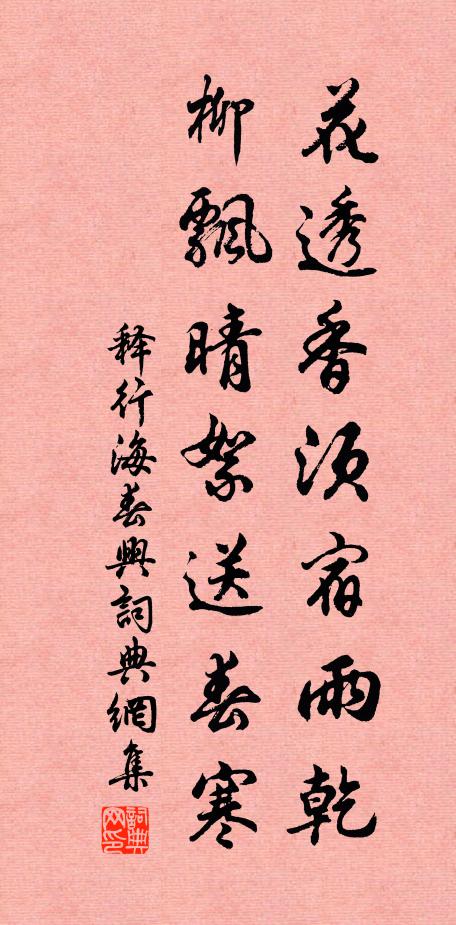 花透香须宿雨乾
柳飄晴絮送春寒
释行海春興詞典網集
詞典网印